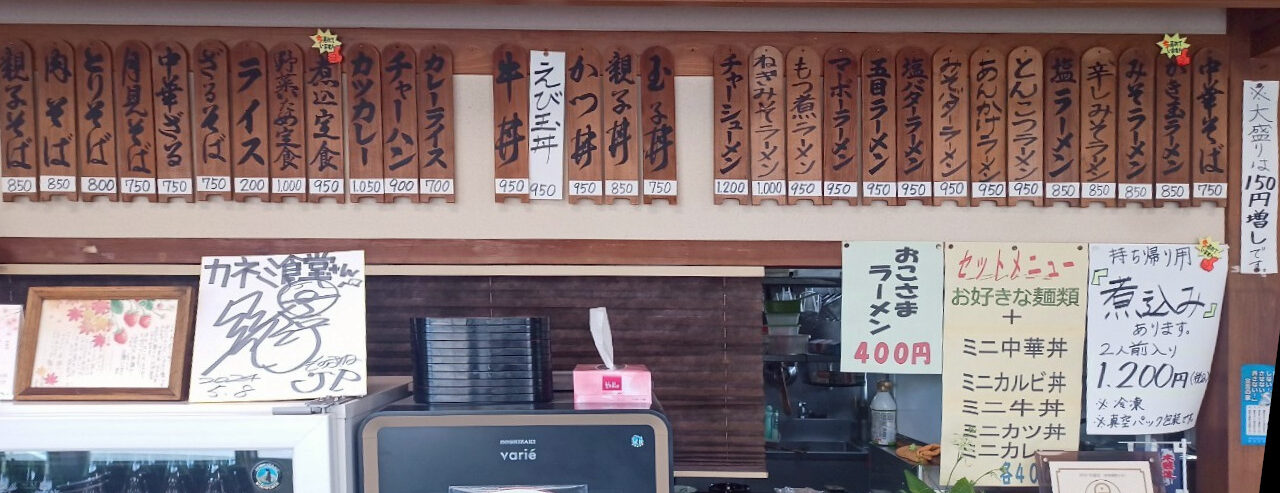 中華そば
750
かき玉ラーメン
850
みそラーメン
850
辛しみそラーメン
850
塩ラーメン
850
とんこつラーメン
950
あんかけラーメン
950
みそバターラーメン
950
塩バターラーメン
950
五目ラーメン
950
マーボーラーメン
950
もつ煮ラーメン
950
ねぎみそラーメン
1.000
チャーシューメン
1.200
玉子丼
750
親子丼
850
かつ丼
950
えび玉丼
950
牛丼
950
カレーライス
700
チャーハン
900
カツカレー
1.050
煮込定食
950
野菜いため定食
1.000
ライス
200
ざるそば
750
中華ざる
750
月見そば
750
とりそば
800
肉そば
850
親子そば
850
※大盛りは150円増しです。
カネミ食堂さん江
2024
5.8
JP
HOSHIZAKI
varié
おこさま
ラーメン
400円
セットメニュー
お好きな麺類
+
ミニ中華丼
ミニカルビ丼
ミニ牛丼
ミニカツ丼
ミニカレー
各40
持ち帰り用
『煮込み』
あります。
2人前入り
1.200円(税込)
※冷凍
※真空パック包装です